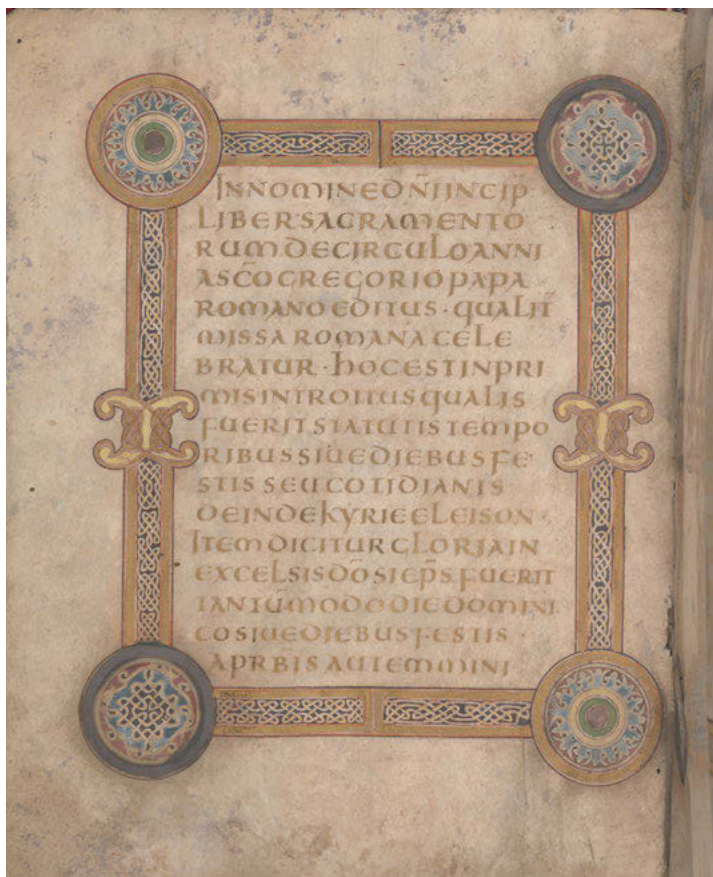 IN NOMINE DN̄I INCIP
LIBER SACRAMENTO
RUM DE CIRCULO ANNI
A SC̄O GREGORIO PAPA
ROMANO EDITUS · QUALIT̄
MISSA ROMANA CELE
BRATUR · HOC EST IN PRI
MIS INTROITUS QUALIS
FUERIT STATUTIS TEMPO
RIBUS SIUE DIEBUS FE
STIS SEU COTIDIANIS
DEINDE KYRIE ELEISON ·
ITEM DICITUR GLORIA IN
EXCELSIS DO̅ SI EP̄S FUERIT
TANTŪMODO DIE DOMINI
CO SIUE DIEBUS FESTIS ·
A PRB̄IS AUTEM MINI